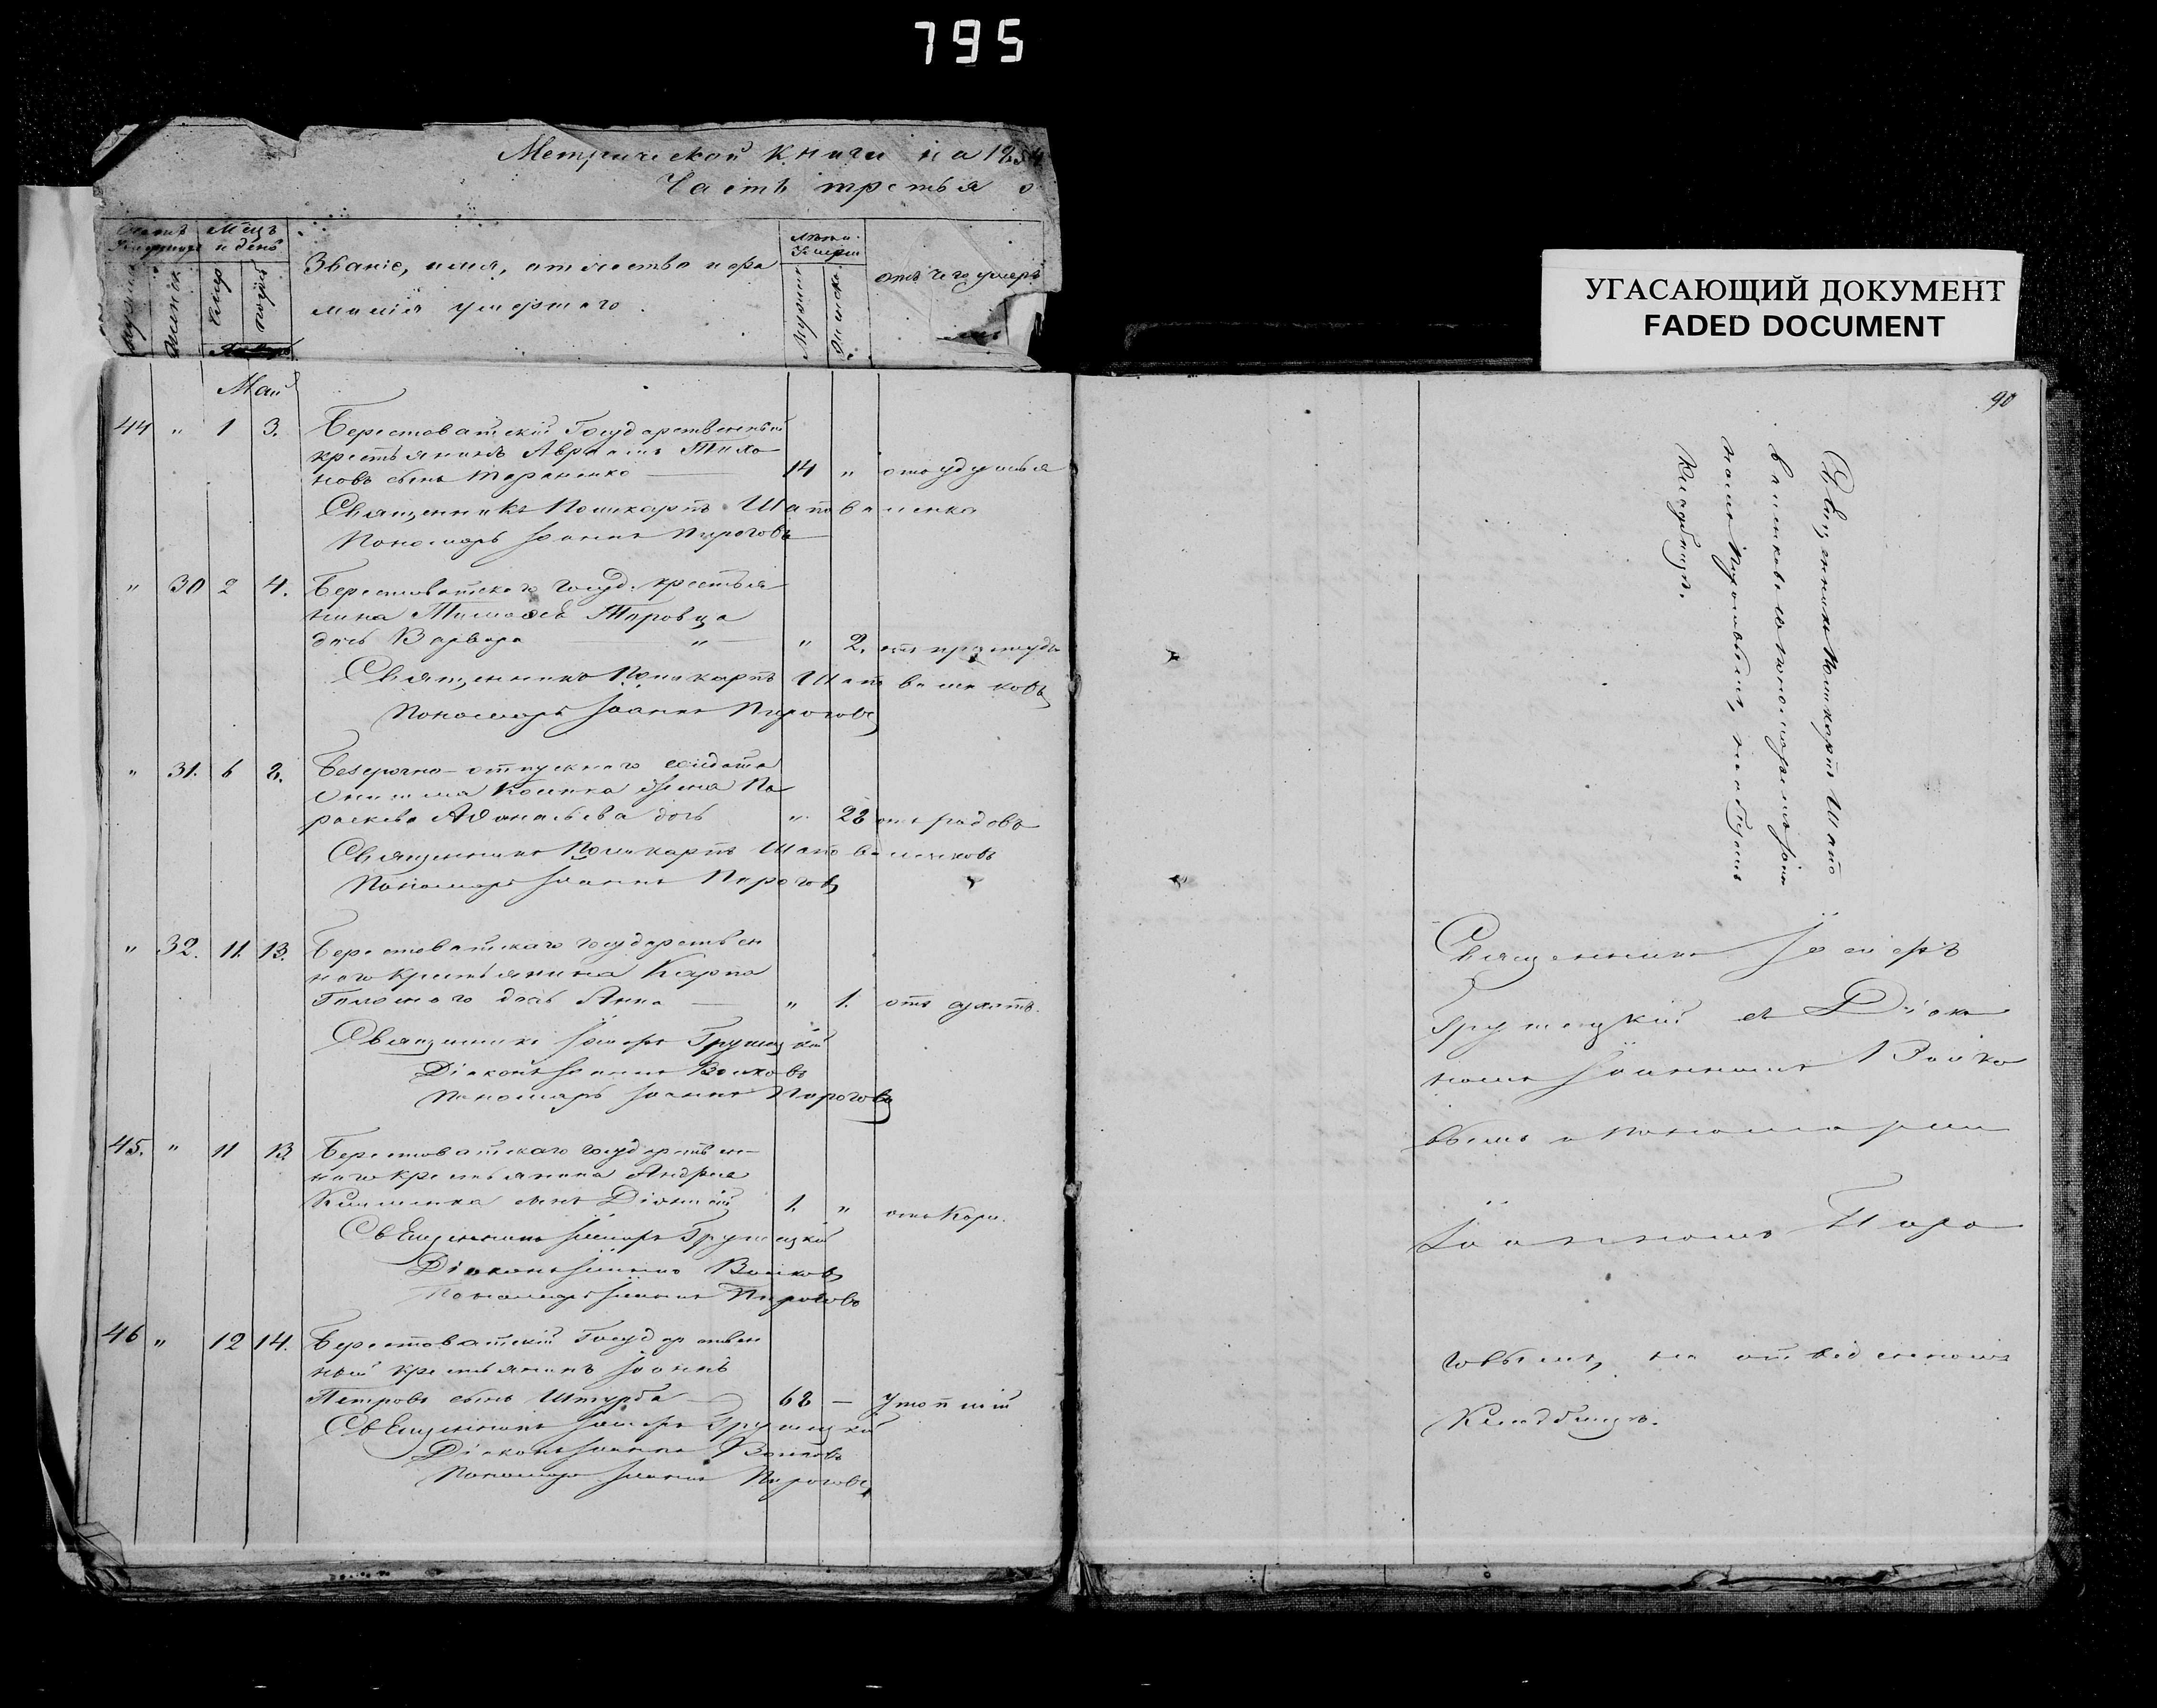 795
Метрической книги на 1854
Часть третья о
Счетъ
Мѣцъ
и день
Звания, имя, отчество и фа
милія умершаго.
Лѣта
отъ чего умеръ
УГАСАЮЩИЙ ДОКУМЕНТ
FADED DOCUMENT
90
Май
44 " 1 3. Берестоватскій Государственный
крестьянинъ Авраамъ Тихо
новъ сынъ Тараненко — 14 " отъ удушья
Священникъ Поликарпъ Шаповаленко
Пономарь Іоаннъ Пироговъ
" 30 2 4. Берестоватскаго госуд. крестья
нина Тимофея Таровца
дочь Варвара " " 2. отъ простуды
Священникъ Поликарпъ Шаповаленковъ
Пономарь Іоаннъ Пироговъ
" 31. 6 8. Безсрочно-отпускнаго солдата
жена Па
раскева Афанасьева дочь " 28 отъ родовъ
Священникъ Поликарпъ Шаповаленковъ
Пономарь Іоаннъ Пироговъ
" 32. 11. 13. Берестоватскаго государствен
наго крестьянина Карпа
дочь Анна — " 1. отъ сухот.
Священникъ Іосифъ Грушецкій
Діаконъ Іоаннъ Волковъ
Пономарь Іоаннъ Пироговъ
45. " 11 13 Берестоватскаго государствен-
наго крестьянина Андрея
сынъ Діонисій 1. " отъ Кори.
Священникъ Іосифъ Грушецкій
Діаконъ Іоаннъ Волковъ
Пономарь Іоаннъ Пироговъ
46 " 12 14. Берестоватскій Государствен
ный крестьянинъ Іоаннъ
Петровъ сынъ Штурба — 68 — утопшій
Священникъ Іосифъ Грушецкій
Діаконъ Іоаннъ Волковъ
Пономарь Іоаннъ Пироговъ
Священникъ Поликарпъ Шапо
валенковъ съ пономаремъ Іоан
номъ Пироговымъ, на общемъ
Кладбищѣ.
Священникъ Іосифъ
Грушецкій съ Діако
номъ Іоанномъ Волко
вымъ и пономаремъ
Іоанномъ Пиро
говымъ, на отведенномъ
Кладбищѣ.